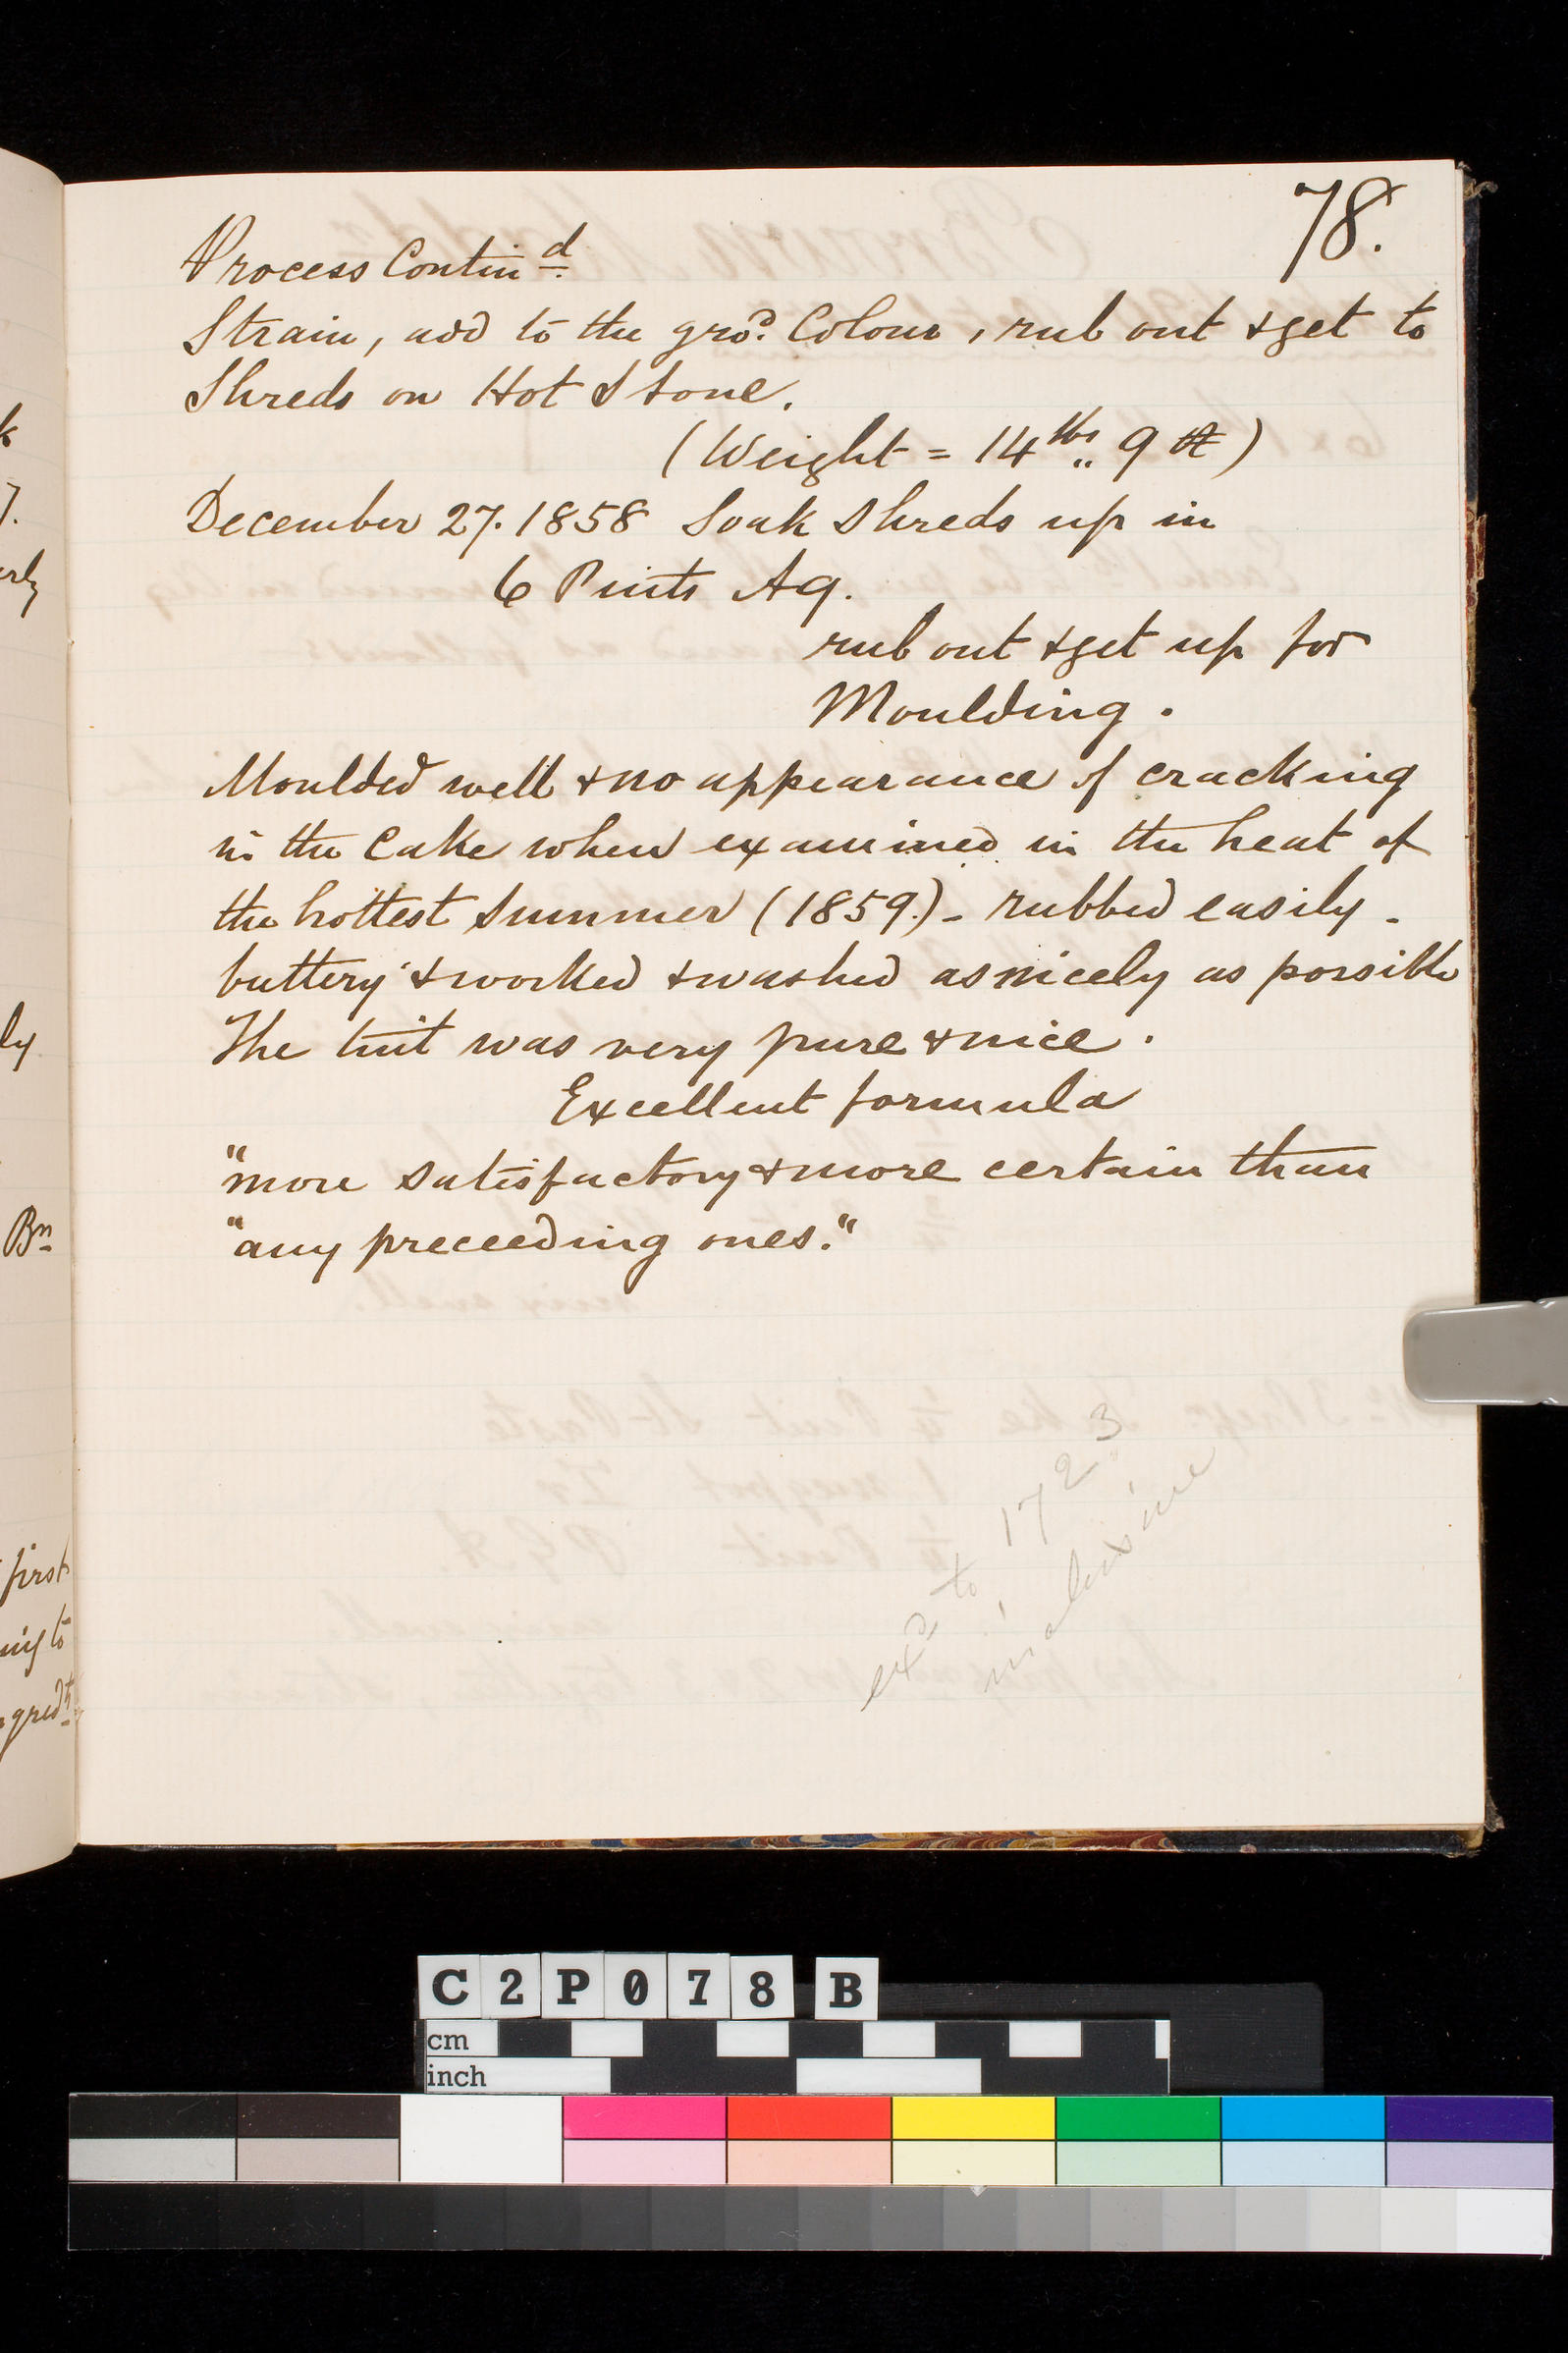 78.
Process Contind
Strain, add to the grod. Colour, rub out & get to
Shreds on Hot Stone.
(Weight = 14 lbs 9
December 27. 1858 Soak Shreds up in
6 Pints Aq.
rub out & get up for
Moulding.
Moulded well & no appearance of cracking
in the Cake when examined in the heat of
the hottest Summer (1859.) - rubbed easily -
buttery & worked & washed as nicely as possible
The tint was very pure & nice.
Excellent formula
"more satisfactory & more certain than
"any preceeding ones."
exd to 1723
in
k
7.
erly
ly
Bn
first
ing to
gredts
C2P078 B
cm
inch